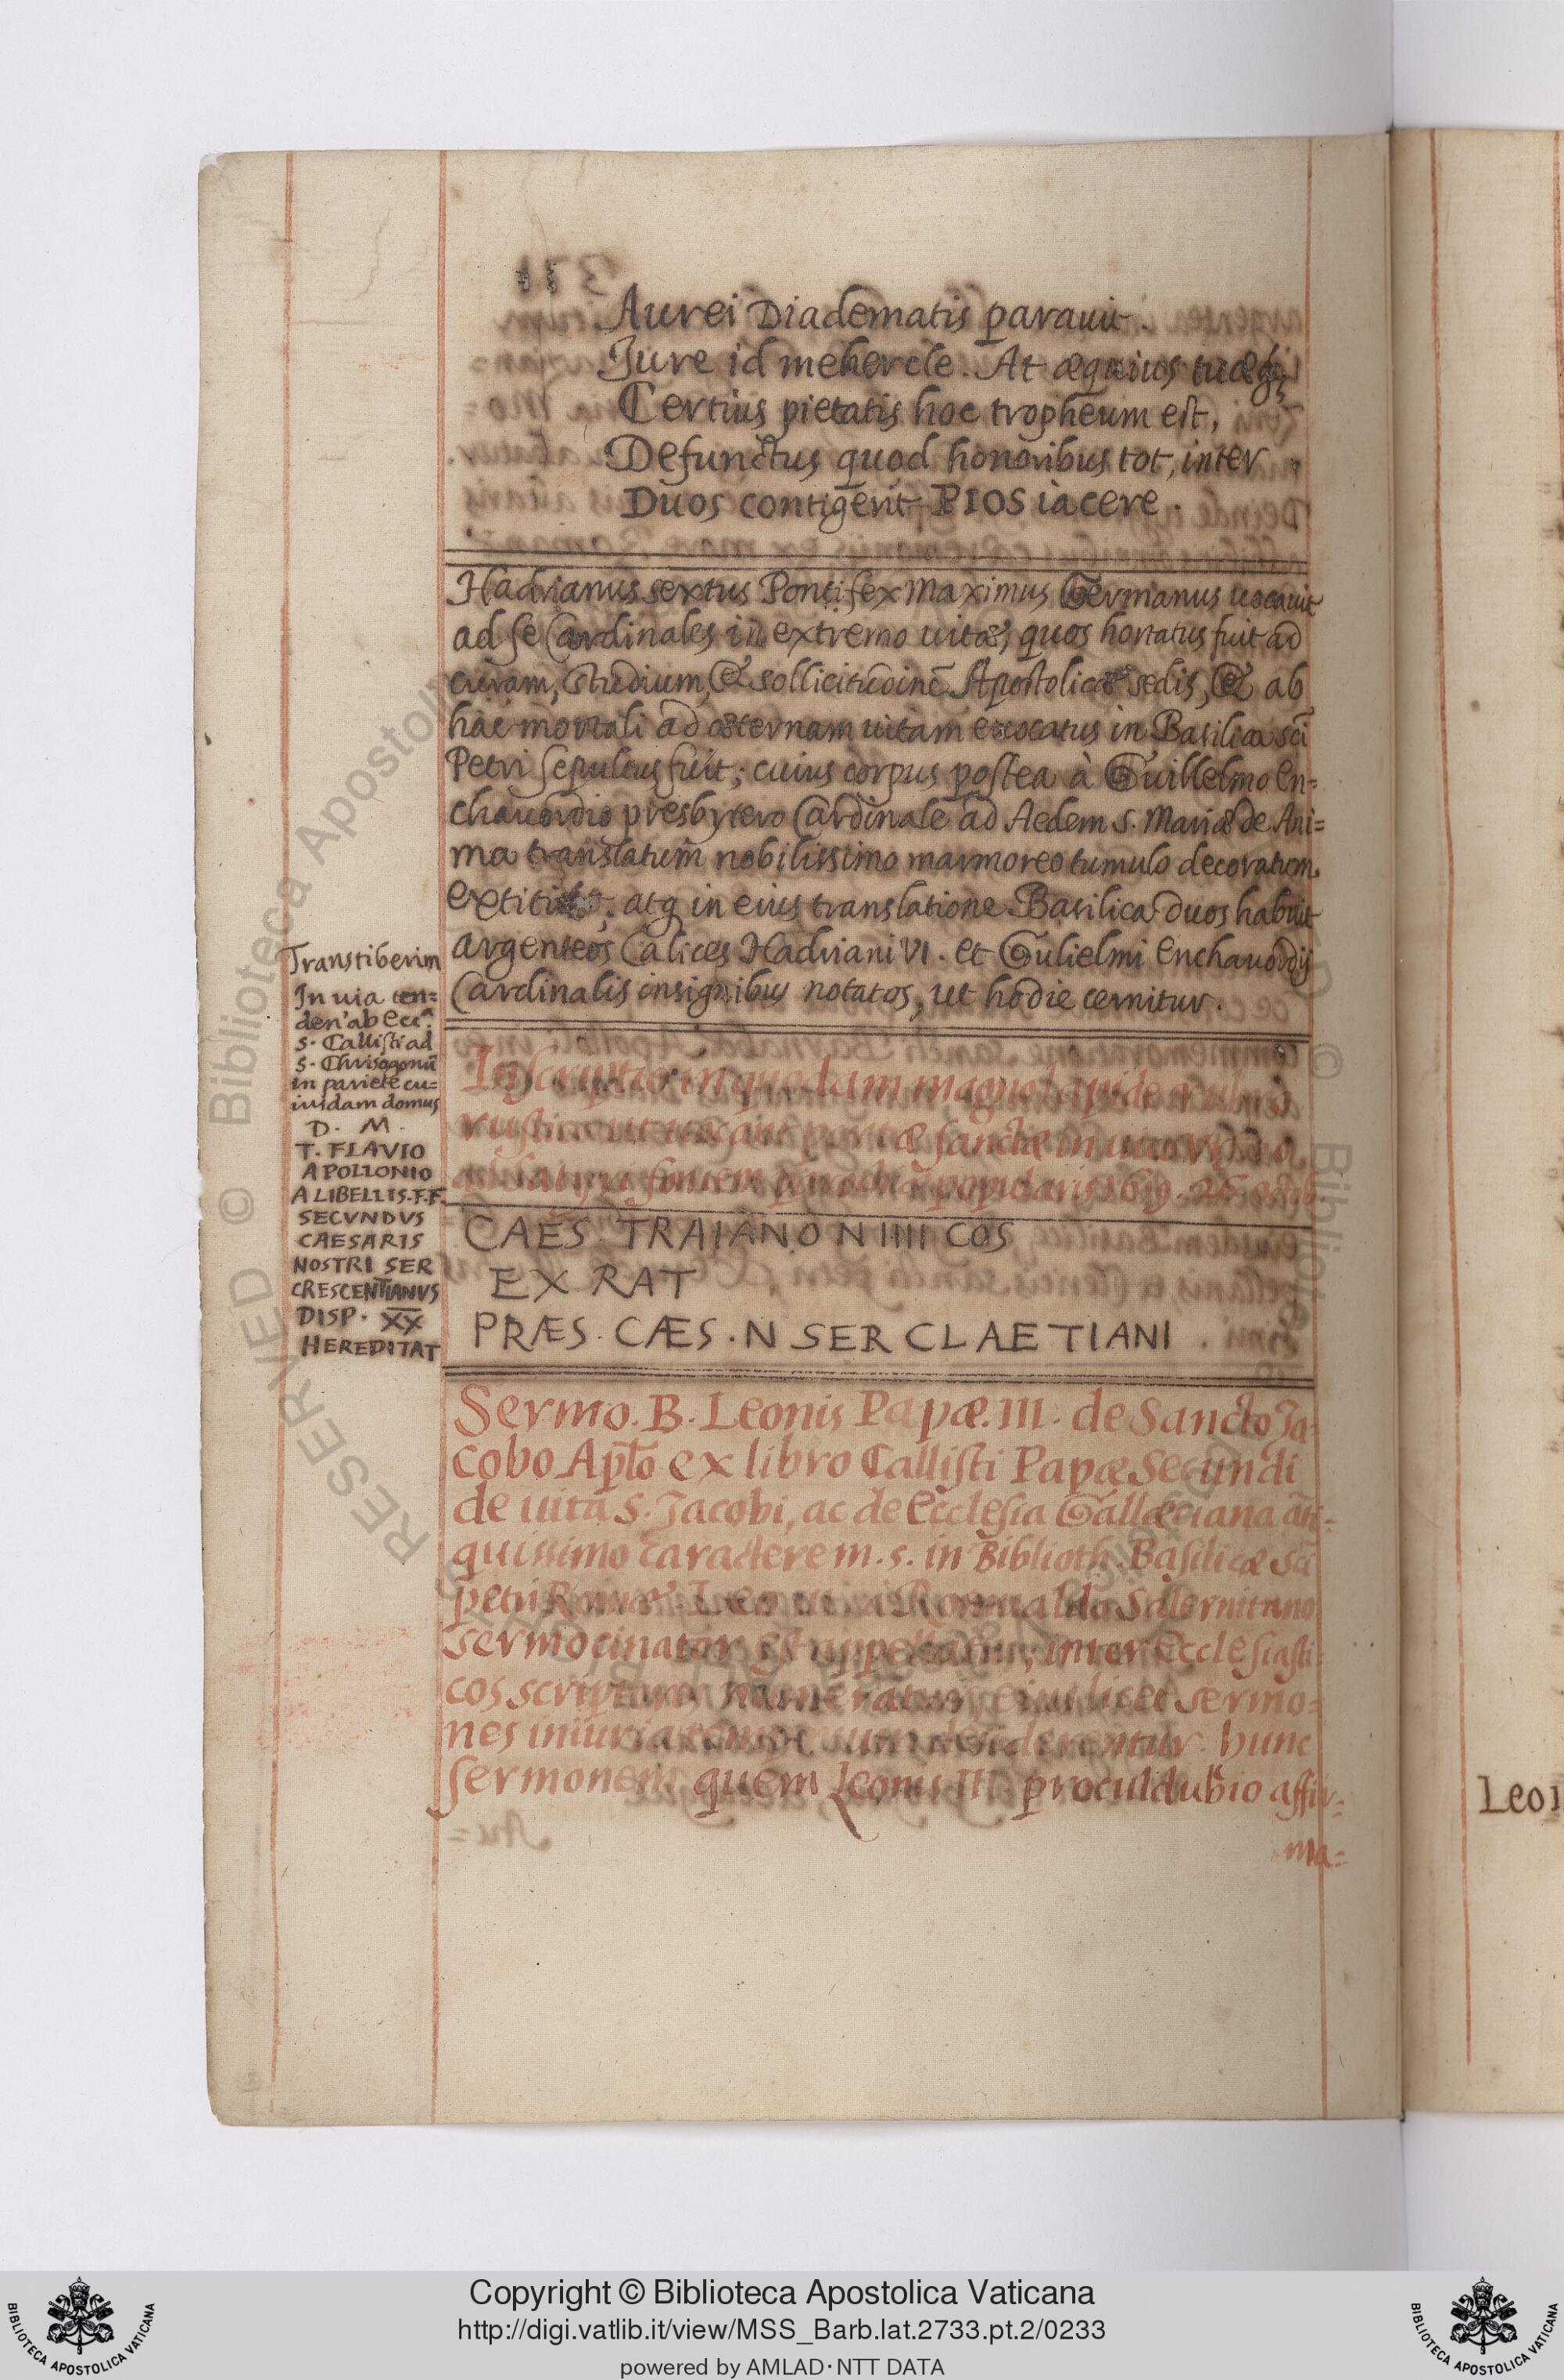 Aurei Diadematis parauit.
Jure id mehercle. At æquius tuæqȝ
Certius pietatis hoc tropheum est,
Defunctus quod honoribus tot, inter
Duos contigerit PIOS iacere.
Hadrianus sextus Pontifex Maximus Germanus uocauit
ad se Cardinales in extremo uitæ, quos hortatus fuit ad
curam, studium, & sollicitudinē Apostolicæ sedis, & ab
hac mortali ad æternam uitam euocatus in Basilica sci
Petri sepultus fuit; cuius corpus postea à Guillelmo En=
chauordio presbytero Cardinale ad Aedem S. Mariæ de Ani=
ma translatum nobilissimo marmoreo tumulo decoratum
atq in eius translatione Basilica duos habuit
argenteos Calices Hadriani VI. et Gulielmi Enchauordij
Cardinalis insignibus notatos, ut hodie cernitur.
Transtiberim
In uia ten=
den' ab Eccᵃ.
S. Callisti ad
S. Chrisogonū
in pariete cu=
iusdam domus
D. M.
T. FLAVIO
APOLLONIO
A LIBELLIS. F. F.
SECVNDVS
CAESARIS
NOSTRI SER
CRESCENTIANVS
DISP. XX
HEREDITAT
Inscriptio in quodam magno lapide
rustico ut uocant portæ sanctæ in uico
fontem popularis 1619. 26
CAES. TRAIANO N IIII COS
EX RAT
PRÆS. CÆS. N SER CLAETIANI
Sermo. B. Leonis Papæ. III. de Sancto Ja=
cobo Apło ex libro Callisti Papæ Secundi
de uita S. Jacobi, ac de Ecclesia Gallæciana āti=
quissimo caractere m. s. in Biblioth. Basilicæ Sci
petri Romæ. Leo Romualdo Salernitano
sermocinator est appellatus, inter Ecclesiasti=
cos scriptores numeratur, eius licet sermo=
nes iniuria temporum desiderentur. hunc
sermonem quem Leonis III. proculdubio affir=
ma=
Leoi
Copyright © Biblioteca Apostolica Vaticana
http://digi.vatlib.it/view/MSS_Barb.lat.2733.pt.2/0233
powered by AMLAD·NTT DATA
BIBLIOTECA APOSTOLICA VATICANA
BIBLIOTECA APOSTOLICA VATICANA